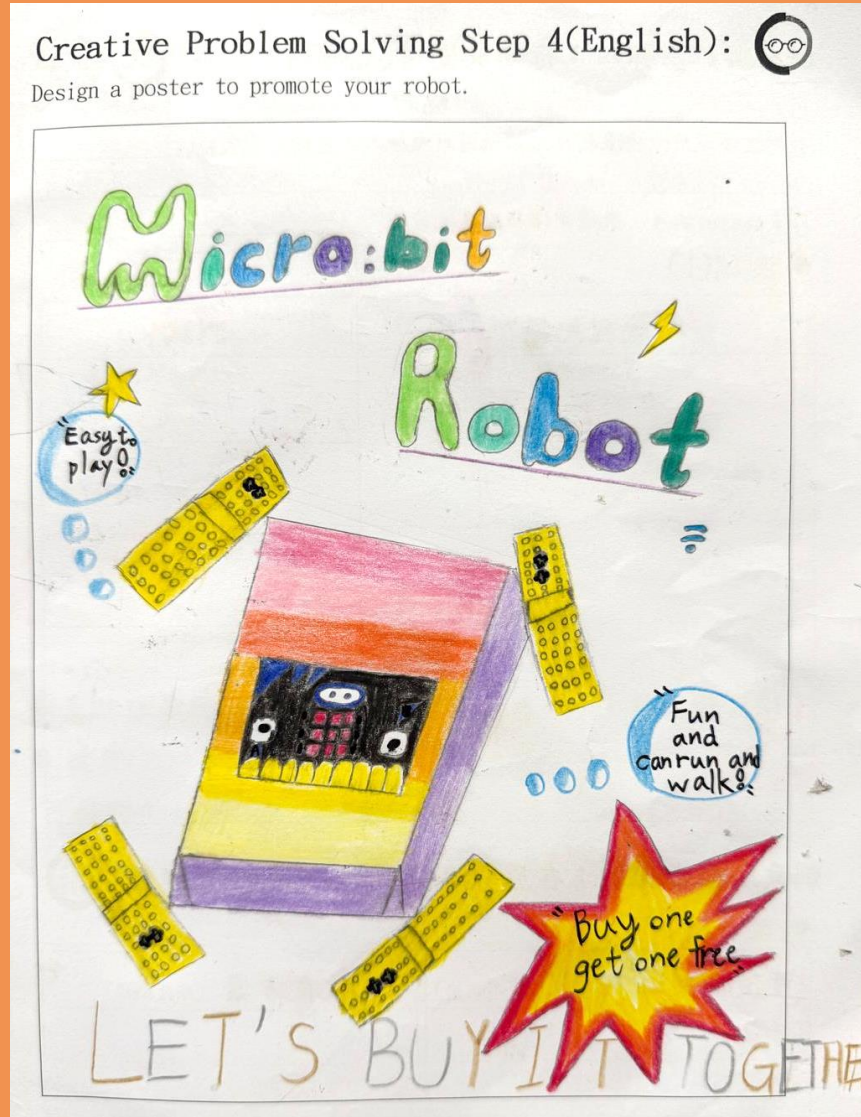 Creative Problem Solving Step 4(English):
Design a poster to promote your robot.
Micro:bit
Robot
"Easy to
play!"
"Fun
and
can run and
walk!"
"Buy one
get one free"
LET'S BUY IT TOGETHE